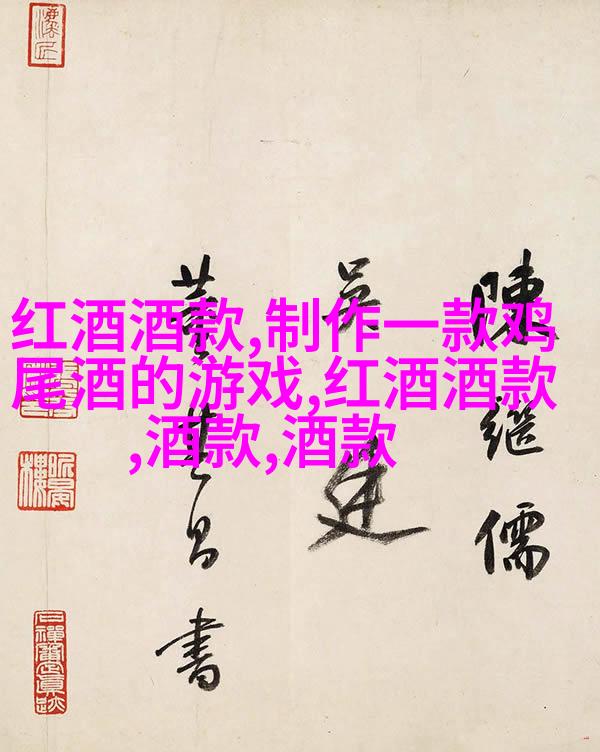 红酒酒款,制作一款鸡
尾酒的游戏,红酒酒款
,酒款,酒款
陳繼儒
吳廷
董其昌書